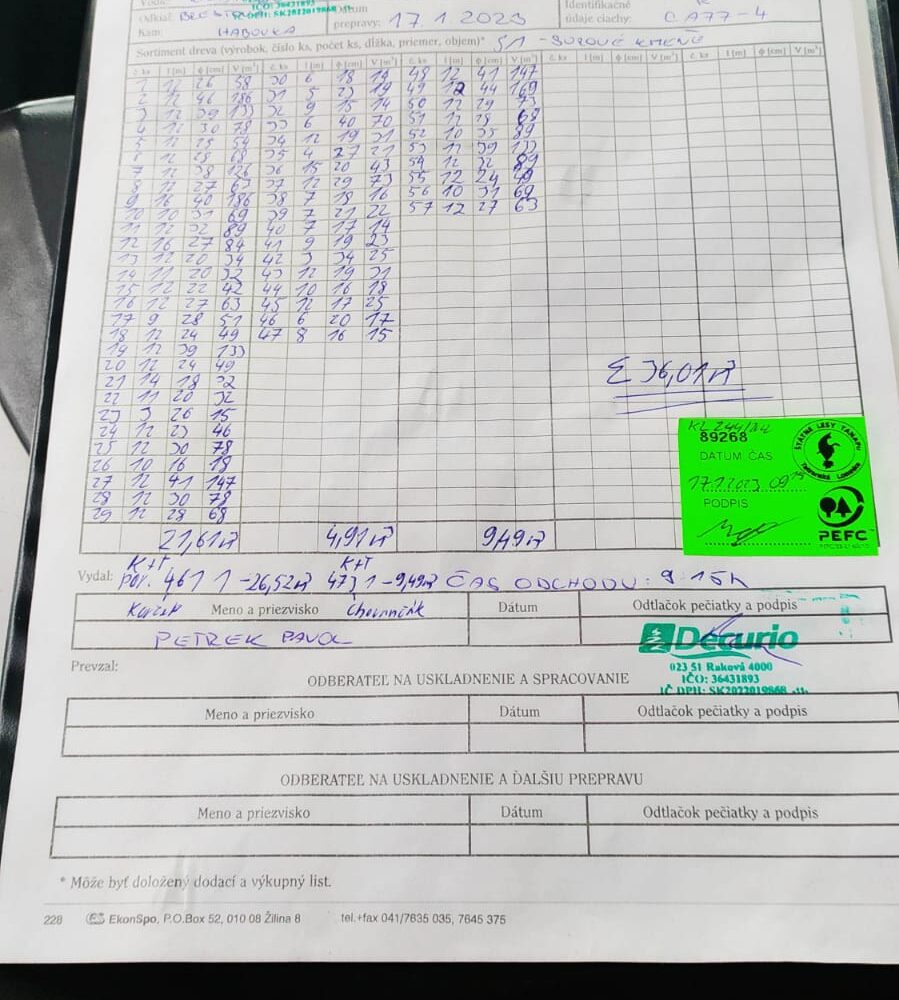 IČO: 36431893
Odkiaľ BREST
IČ DPH: SK2022019868
Dátum prepravy: 17.1.2023
Identifikačné údaje ciachy: CA77-4
Kam: HABOVKA
Sortiment dreva (výrobok, číslo ks, počet ks, dĺžka, priemer, objem)* S1 - SUROVÉ KMENE
č. ks l [m] ϕ [cm] V [m³] č. ks l [m] ϕ [cm] V [m³] č. ks l [m] ϕ [cm] V [m³] č. ks l [m] ϕ [cm] V [m³] č. ks l [m] ϕ [cm] V [m³]
1 12 26 59 30 6 18 19 48 12 41 147
2 12 46 186 31 5 23 19 49 12 44 169
3 12 39 133 32 9 15 14 50 12 29 73
4 12 30 78 33 6 40 70 51 12 28 68
5 12 25 54 34 12 19 31 52 10 35 89
6 12 28 68 35 4 27 21 53 12 39 133
7 12 38 126 36 15 20 43 54 12 32 89
8 12 27 63 37 12 29 73 55 12 24 49
9 16 40 186 38 7 18 16 56 10 31 69
10 10 31 69 39 7 21 22 57 12 27 63
11 12 32 89 40 7 17 14
12 16 27 84 41 9 19 23
13 12 20 34 42 3 34 25
14 11 20 32 43 12 19 31
15 12 22 42 44 10 16 18
16 12 27 63 45 12 17 25
17 9 28 51 46 6 20 17
18 12 24 49 47 8 16 15
19 12 39 133
20 12 24 49
21 14 18 32
22 11 20 32
23 3 26 15
24 12 23 46
25 12 30 78
26 10 16 18
27 12 41 147
28 12 30 78
29 12 28 68
Σ 36,01 m³
89268
DÁTUM ČAS
17.1.2023 09 15
PODPIS
ŠTÁTNE LESY TANAPU
Tatranská Lomnica
PEFC
21,61 m³ 4,91 m³ 9,49 m³
K+T K+T
Vydal: POR. 461 1 - 26,52 m³ 473 1 - 9,49 m³ ČAS ODCHODU: 9 15h
Meno a priezvisko Dátum Odtlačok pečiatky a podpis
PETREK PAVOL
Decurio
023 51 Raková 4000
IČO: 36431893
IČ DPH: SK2022019868
Prevzal:
ODBERATEĽ NA USKLADNENIE A SPRACOVANIE
Meno a priezvisko Dátum Odtlačok pečiatky a podpis
ODBERATEĽ NA USKLADNENIE A ĎALŠIU PREPRAVU
Meno a priezvisko Dátum Odtlačok pečiatky a podpis
* Môže byť doložený dodací a výkupný list.
228 EkonSpo, P.O.Box 52, 010 08 Žilina 8 tel.+fax 041/7635 035, 7645 375